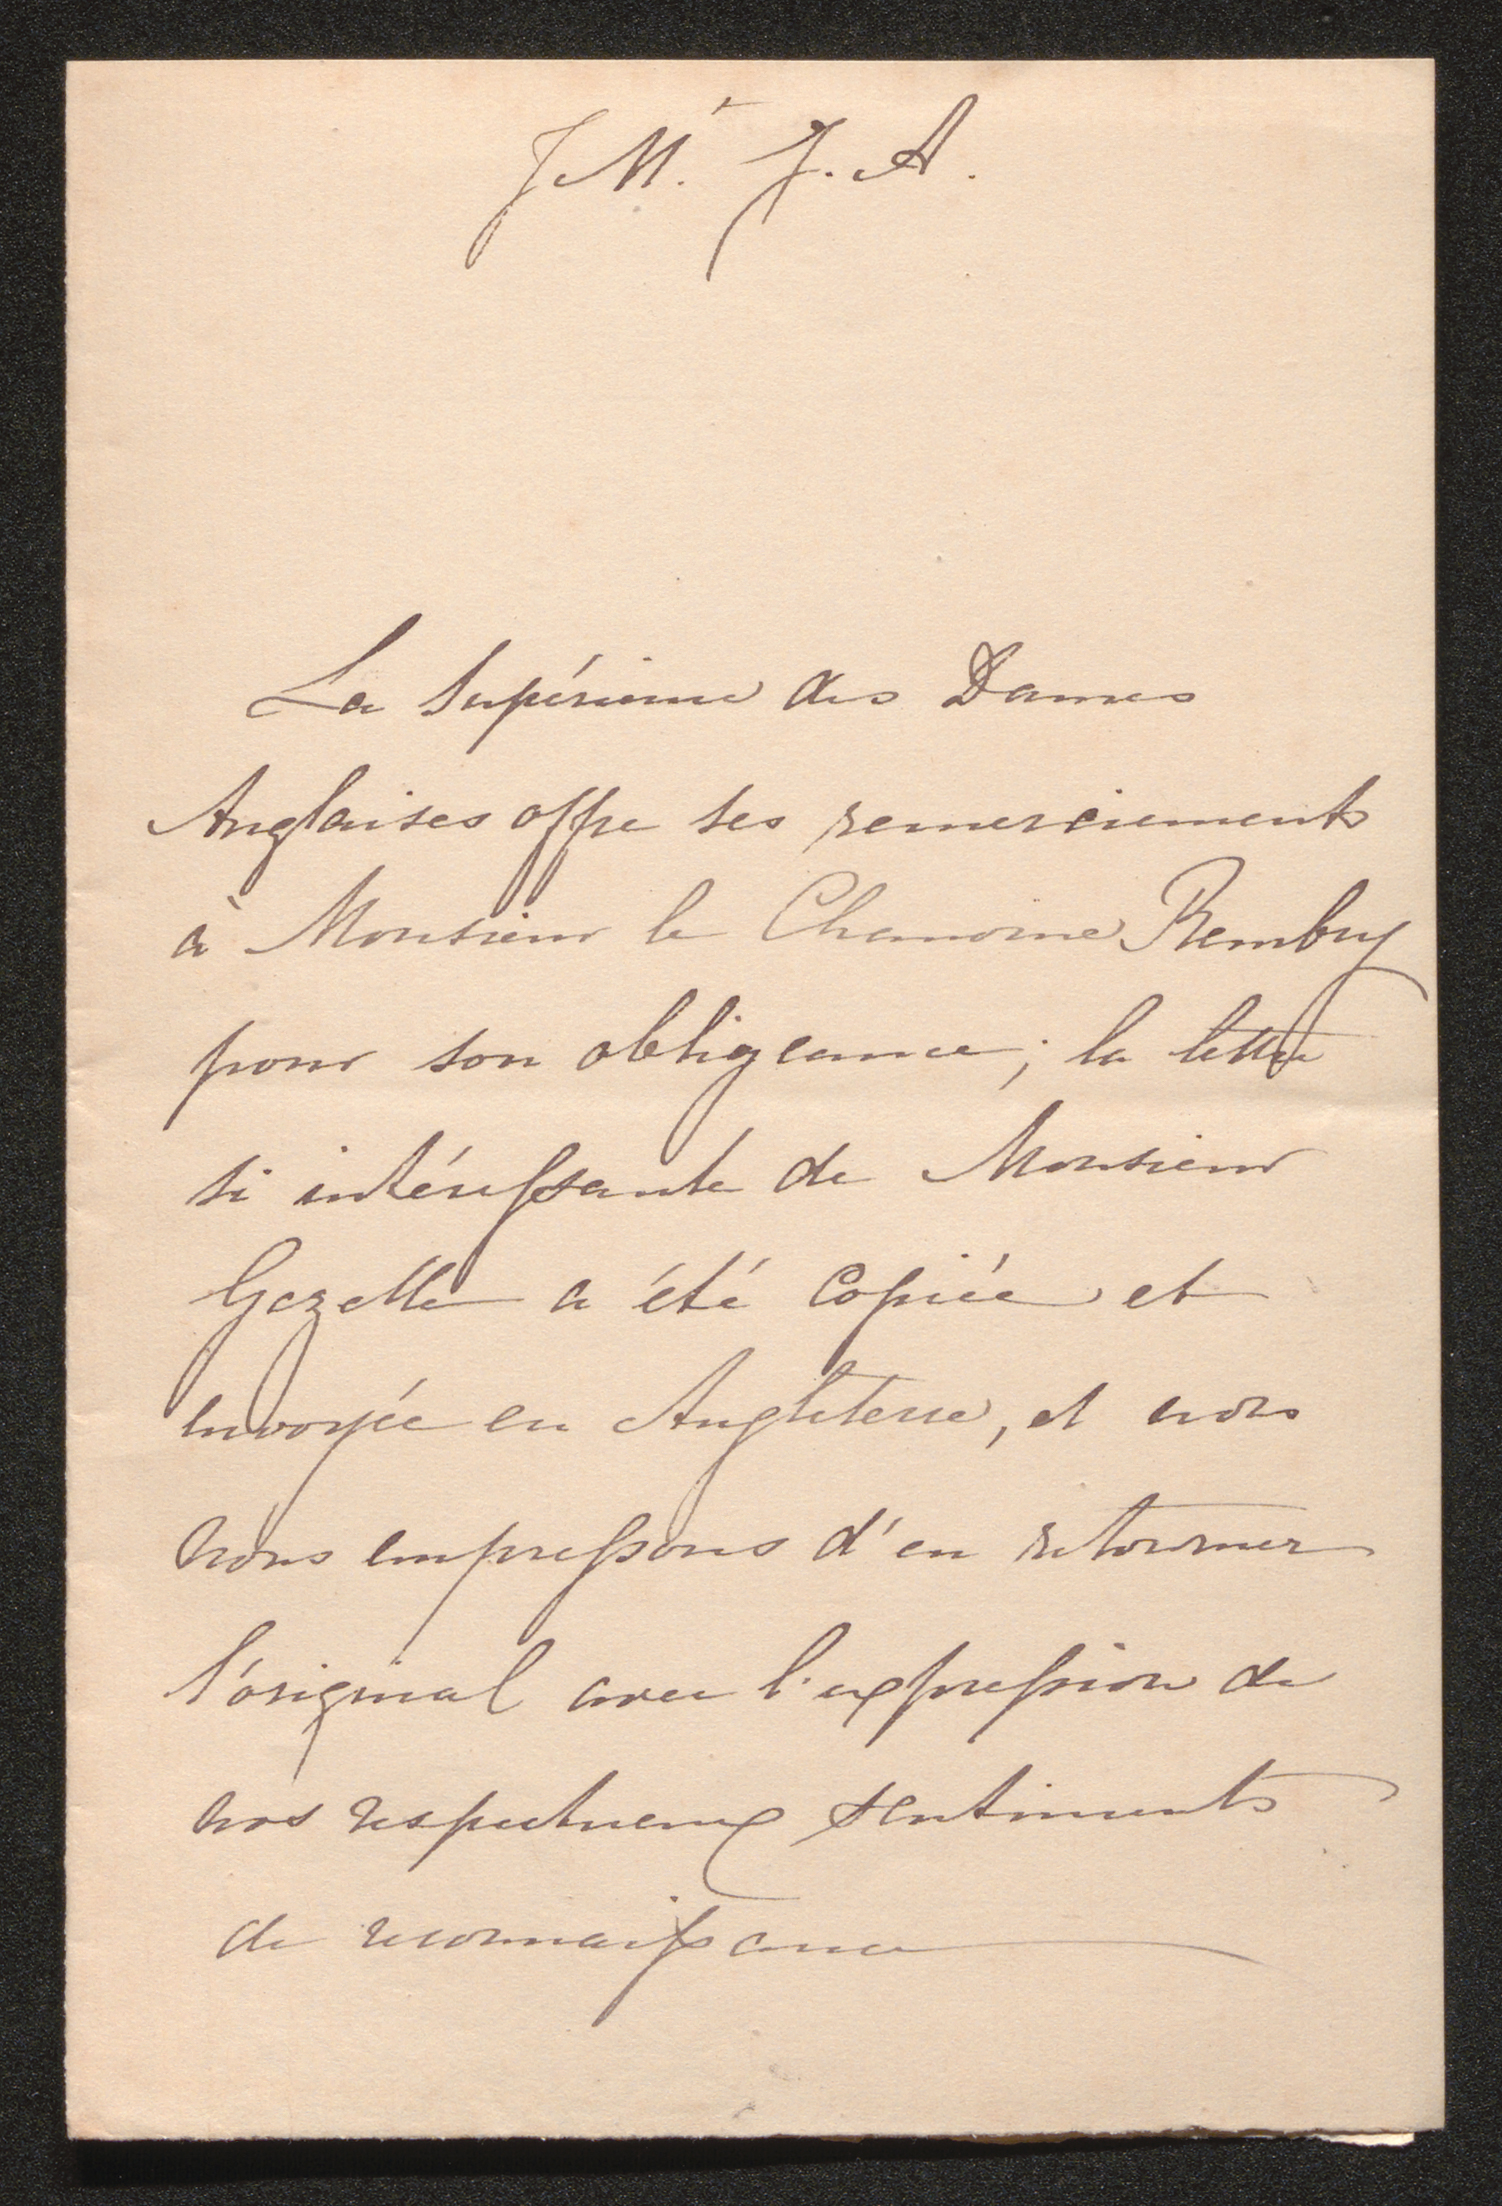 J. M. + J. A.
La Supérieure des Dames
Anglaises offre ses remerciements
à Monsieur le Chanoine Rembry
pour son obligeance; la lettre
si intéressante de Monsieur
Gezelle a été Copiée et
envoyée en Angleterre, et nous
nous empressons d'en retourner
l'original avec l'expression de
nos respectueux sentiments
de reconnaissance